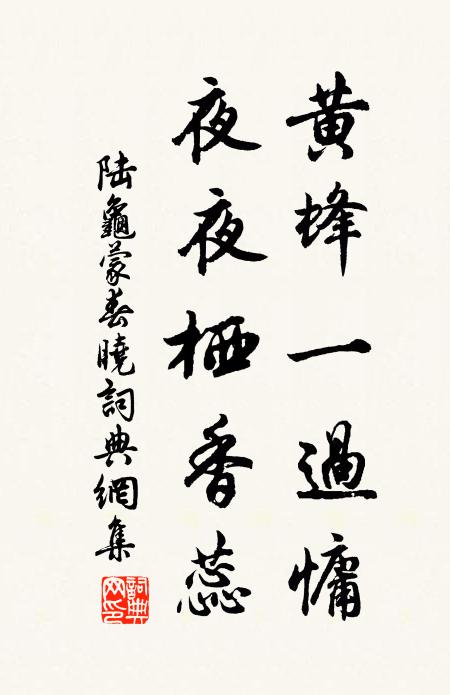 黄蜂一過慵
夜夜栖香蕊
陆龜蒙春曉詞典網集
詞典网印